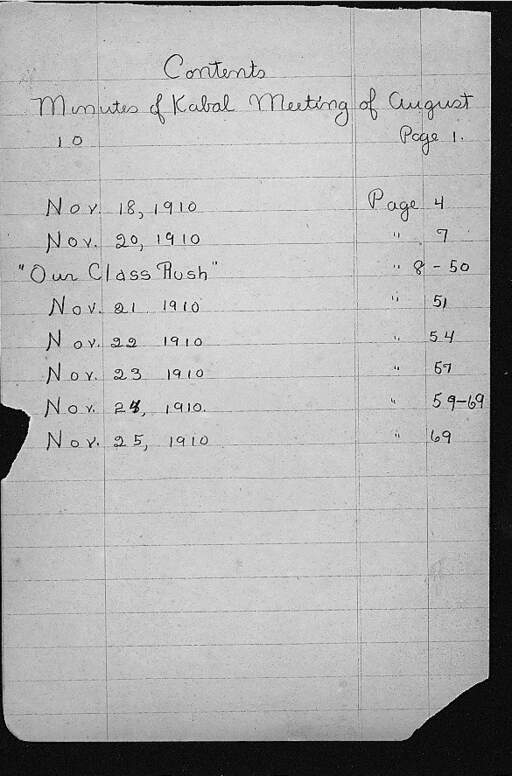 Contents
Minutes of Kabal Meeting of August
10 Page 1.
Nov. 18, 1910 Page 4
Nov. 20, 1910 " 7
"Our Class Rush" " 8-50
Nov. 21 1910 " 51
Nov. 22 1910 " 54
Nov. 23 1910 " 57
Nov. 24, 1910. " 59-69
Nov. 25, 1910 " 69